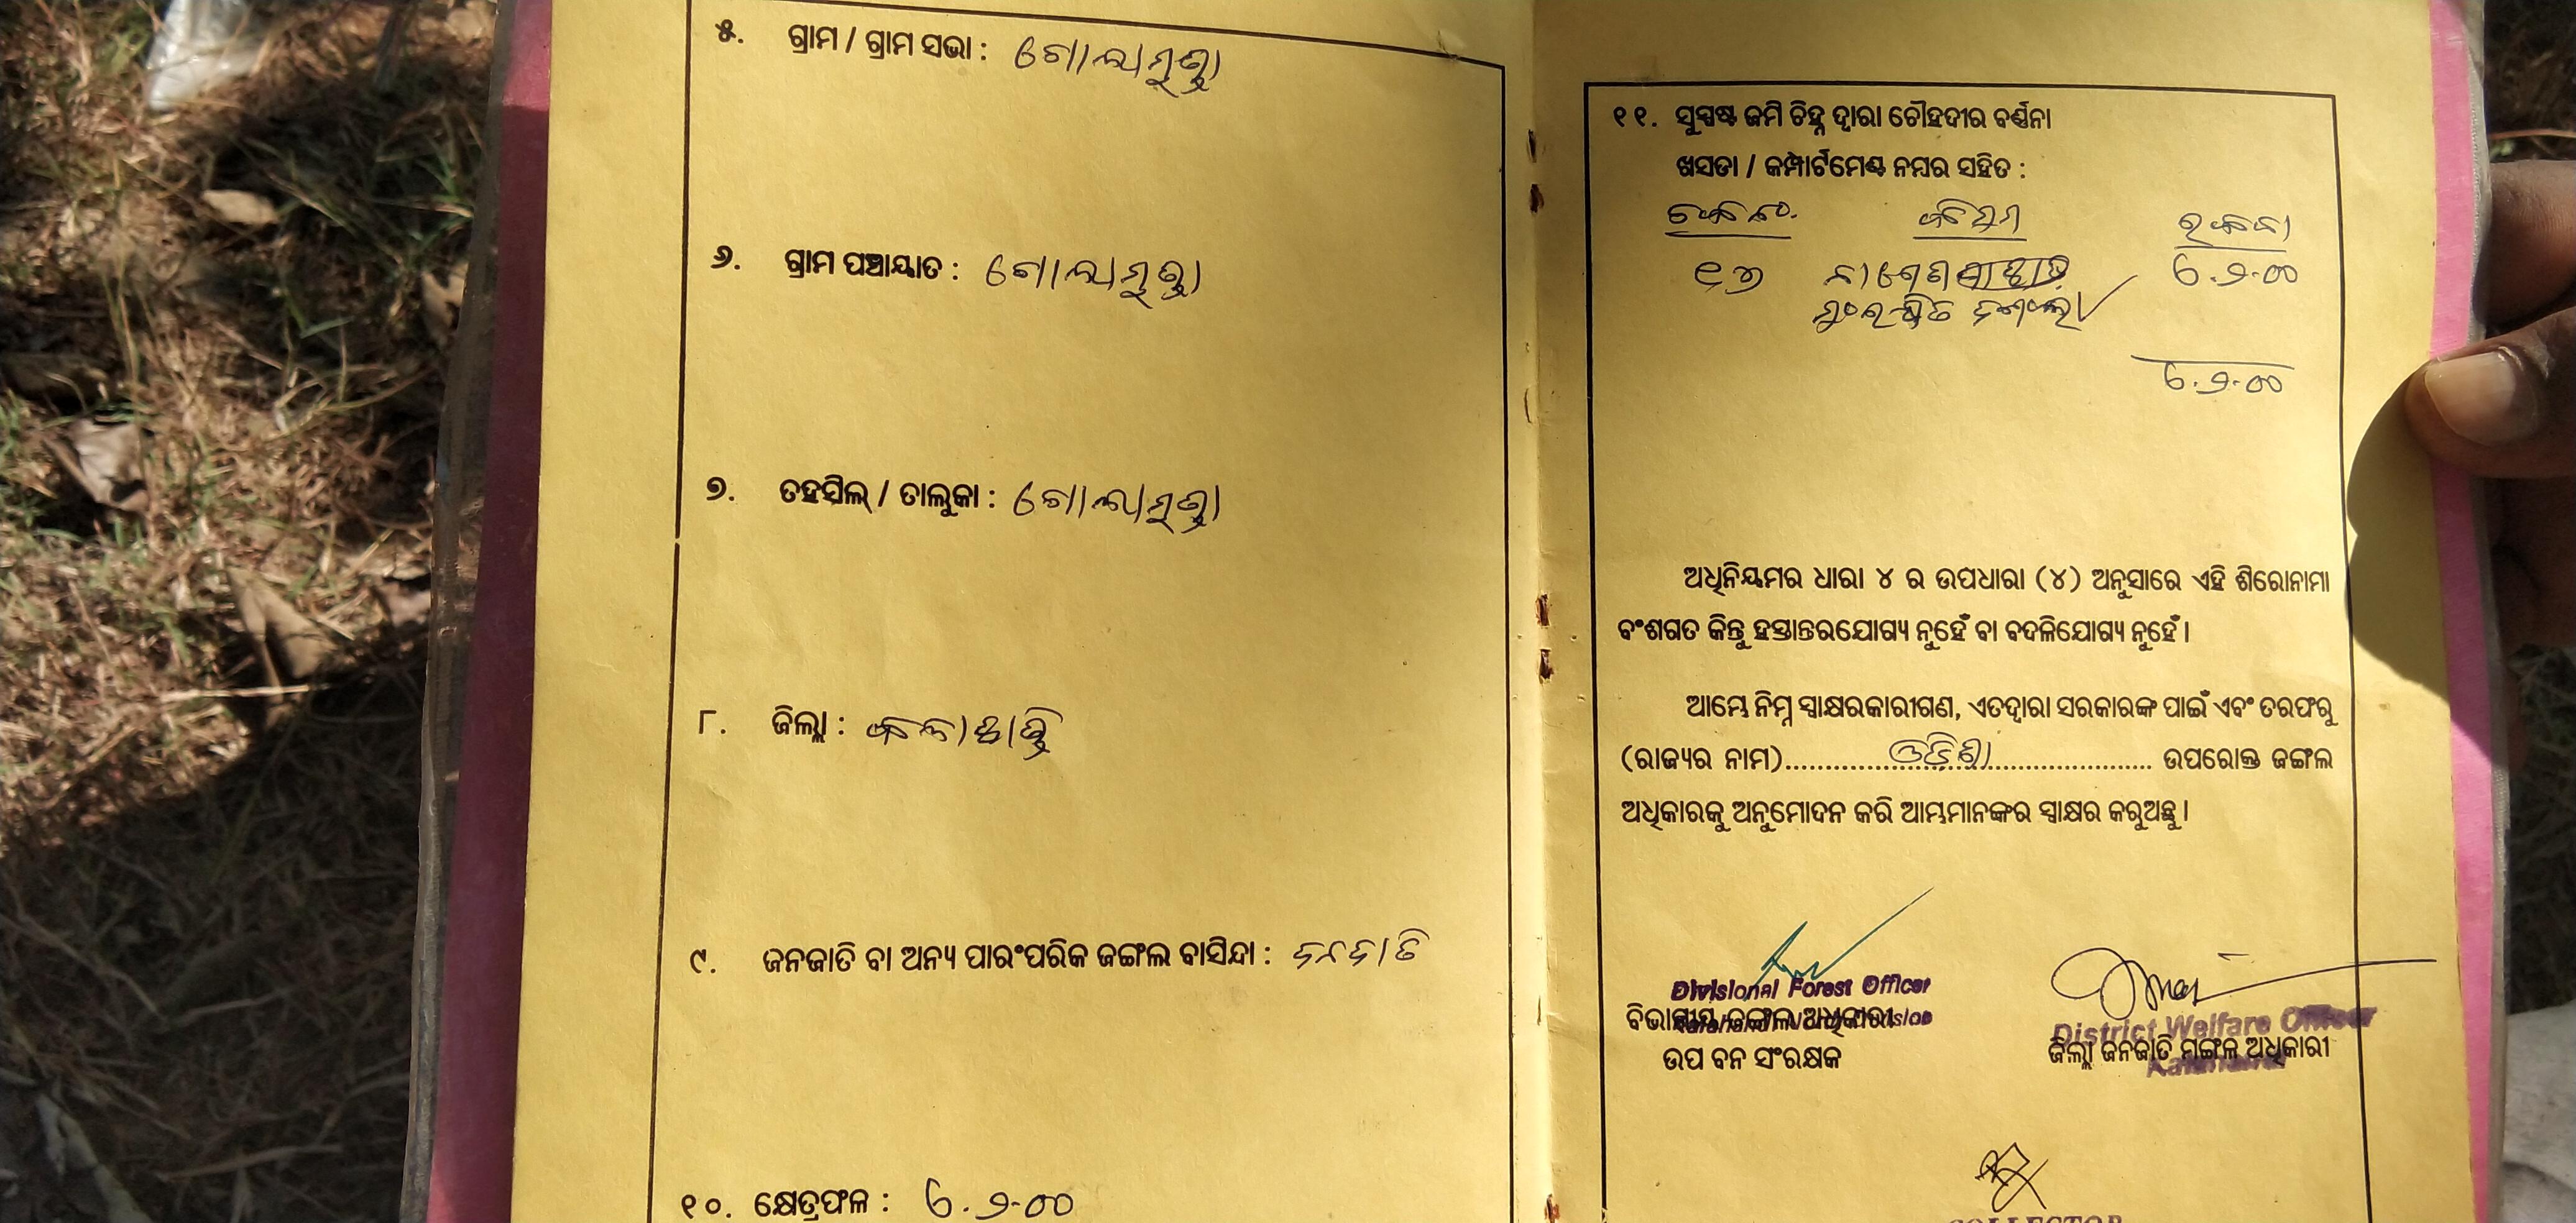 ୫. ଗ୍ରାମ / ଗ୍ରାମ ସଭା : ଗୋଲାମୁଣ୍ଡା
୬. ଗ୍ରାମ ପଞ୍ଚାୟାତ : ଗୋଲାମୁଣ୍ଡା
୭. ତହସିଲ୍ / ତାଲୁକା : ଗୋଲାମୁଣ୍ଡା
୮. ଜିଲ୍ଲା : କଳାହାଣ୍ଡି
୯. ଜନଜାତି ବା ଅନ୍ୟ ପାରଂପରିକ ଜଙ୍ଗଲ ବାସିନ୍ଦା : ଜନଜାତି
୧୦. କ୍ଷେତ୍ରଫଳ : ୦.୨-୦୦
୧୧. ସୁସ୍ପଷ୍ଟ ଜମି ଚିହ୍ନ ଦ୍ୱାରା ଚୌହଦୀର ବର୍ଣ୍ଣନା
ଖସଡା / କମ୍ପାର୍ଟମେଣ୍ଟ ନମ୍ବର ସହିତ :
କିସମ ରକବା
ଅଧିନିୟମର ଧାରା ୪ ର ଉପଧାରା (୪) ଅନୁସାରେ ଏହି ଶିରୋନାମା
ବଂଶଗତ କିନ୍ତୁ ହସ୍ତାନ୍ତରଯୋଗ୍ୟ ନୁହେଁ ବା ବଦଳିଯୋଗ୍ୟ ନୁହେଁ ।
ଆମ୍ଭେ ନିମ୍ନ ସ୍ୱାକ୍ଷରକାରୀଗଣ, ଏତଦ୍ୱାରା ସରକାରଙ୍କ ପାଇଁ ଏବଂ ତରଫରୁ
(ରାଜ୍ୟର ନାମ)..........ଓଡ଼ିଶା.......... ଉପରୋକ୍ତ ଜଙ୍ଗଲ
ଅଧିକାରକୁ ଅନୁମୋଦନ କରି ଆମ୍ଭମାନଙ୍କର ସ୍ୱାକ୍ଷର କରୁଅଛୁ ।
Divisional Forest Officer
ବିଭାଗୀୟ ଜଙ୍ଗଲ ଅଧିକାରୀ
ଉପ ବନ ସଂରକ୍ଷକ
District Welfare Officer
ଜିଲ୍ଲା ଜନଜାତି ମଙ୍ଗଳ ଅଧିକାରୀ
COLLECTOR